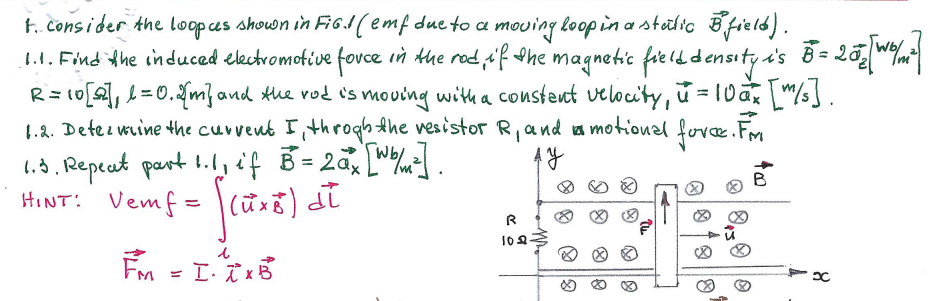 1. consider the loop as shown in FIG.1 (emf due to a moving loop in a static B⃗ field).
1.1. Find the induced electromotive force in the rod, if the magnetic field density is B⃗ = 2a⃗z [Wb/m²]
R = 10[Ω], l = 0.2[m] and the rod is moving with a constent velocity, u⃗ = 10a⃗x [m/s].
1.2. Determine the current I, throgh the resistor R, and a motional force. F⃗M
1.3. Repeat part 1.1, if B⃗ = 2a⃗x [Wb/m²].
HINT: Vemf = ∫l (u⃗ x B⃗) dl⃗
F⃗M = I. l⃗ x B⃗
y
B⃗
R
10Ω
F⃗
u⃗
x